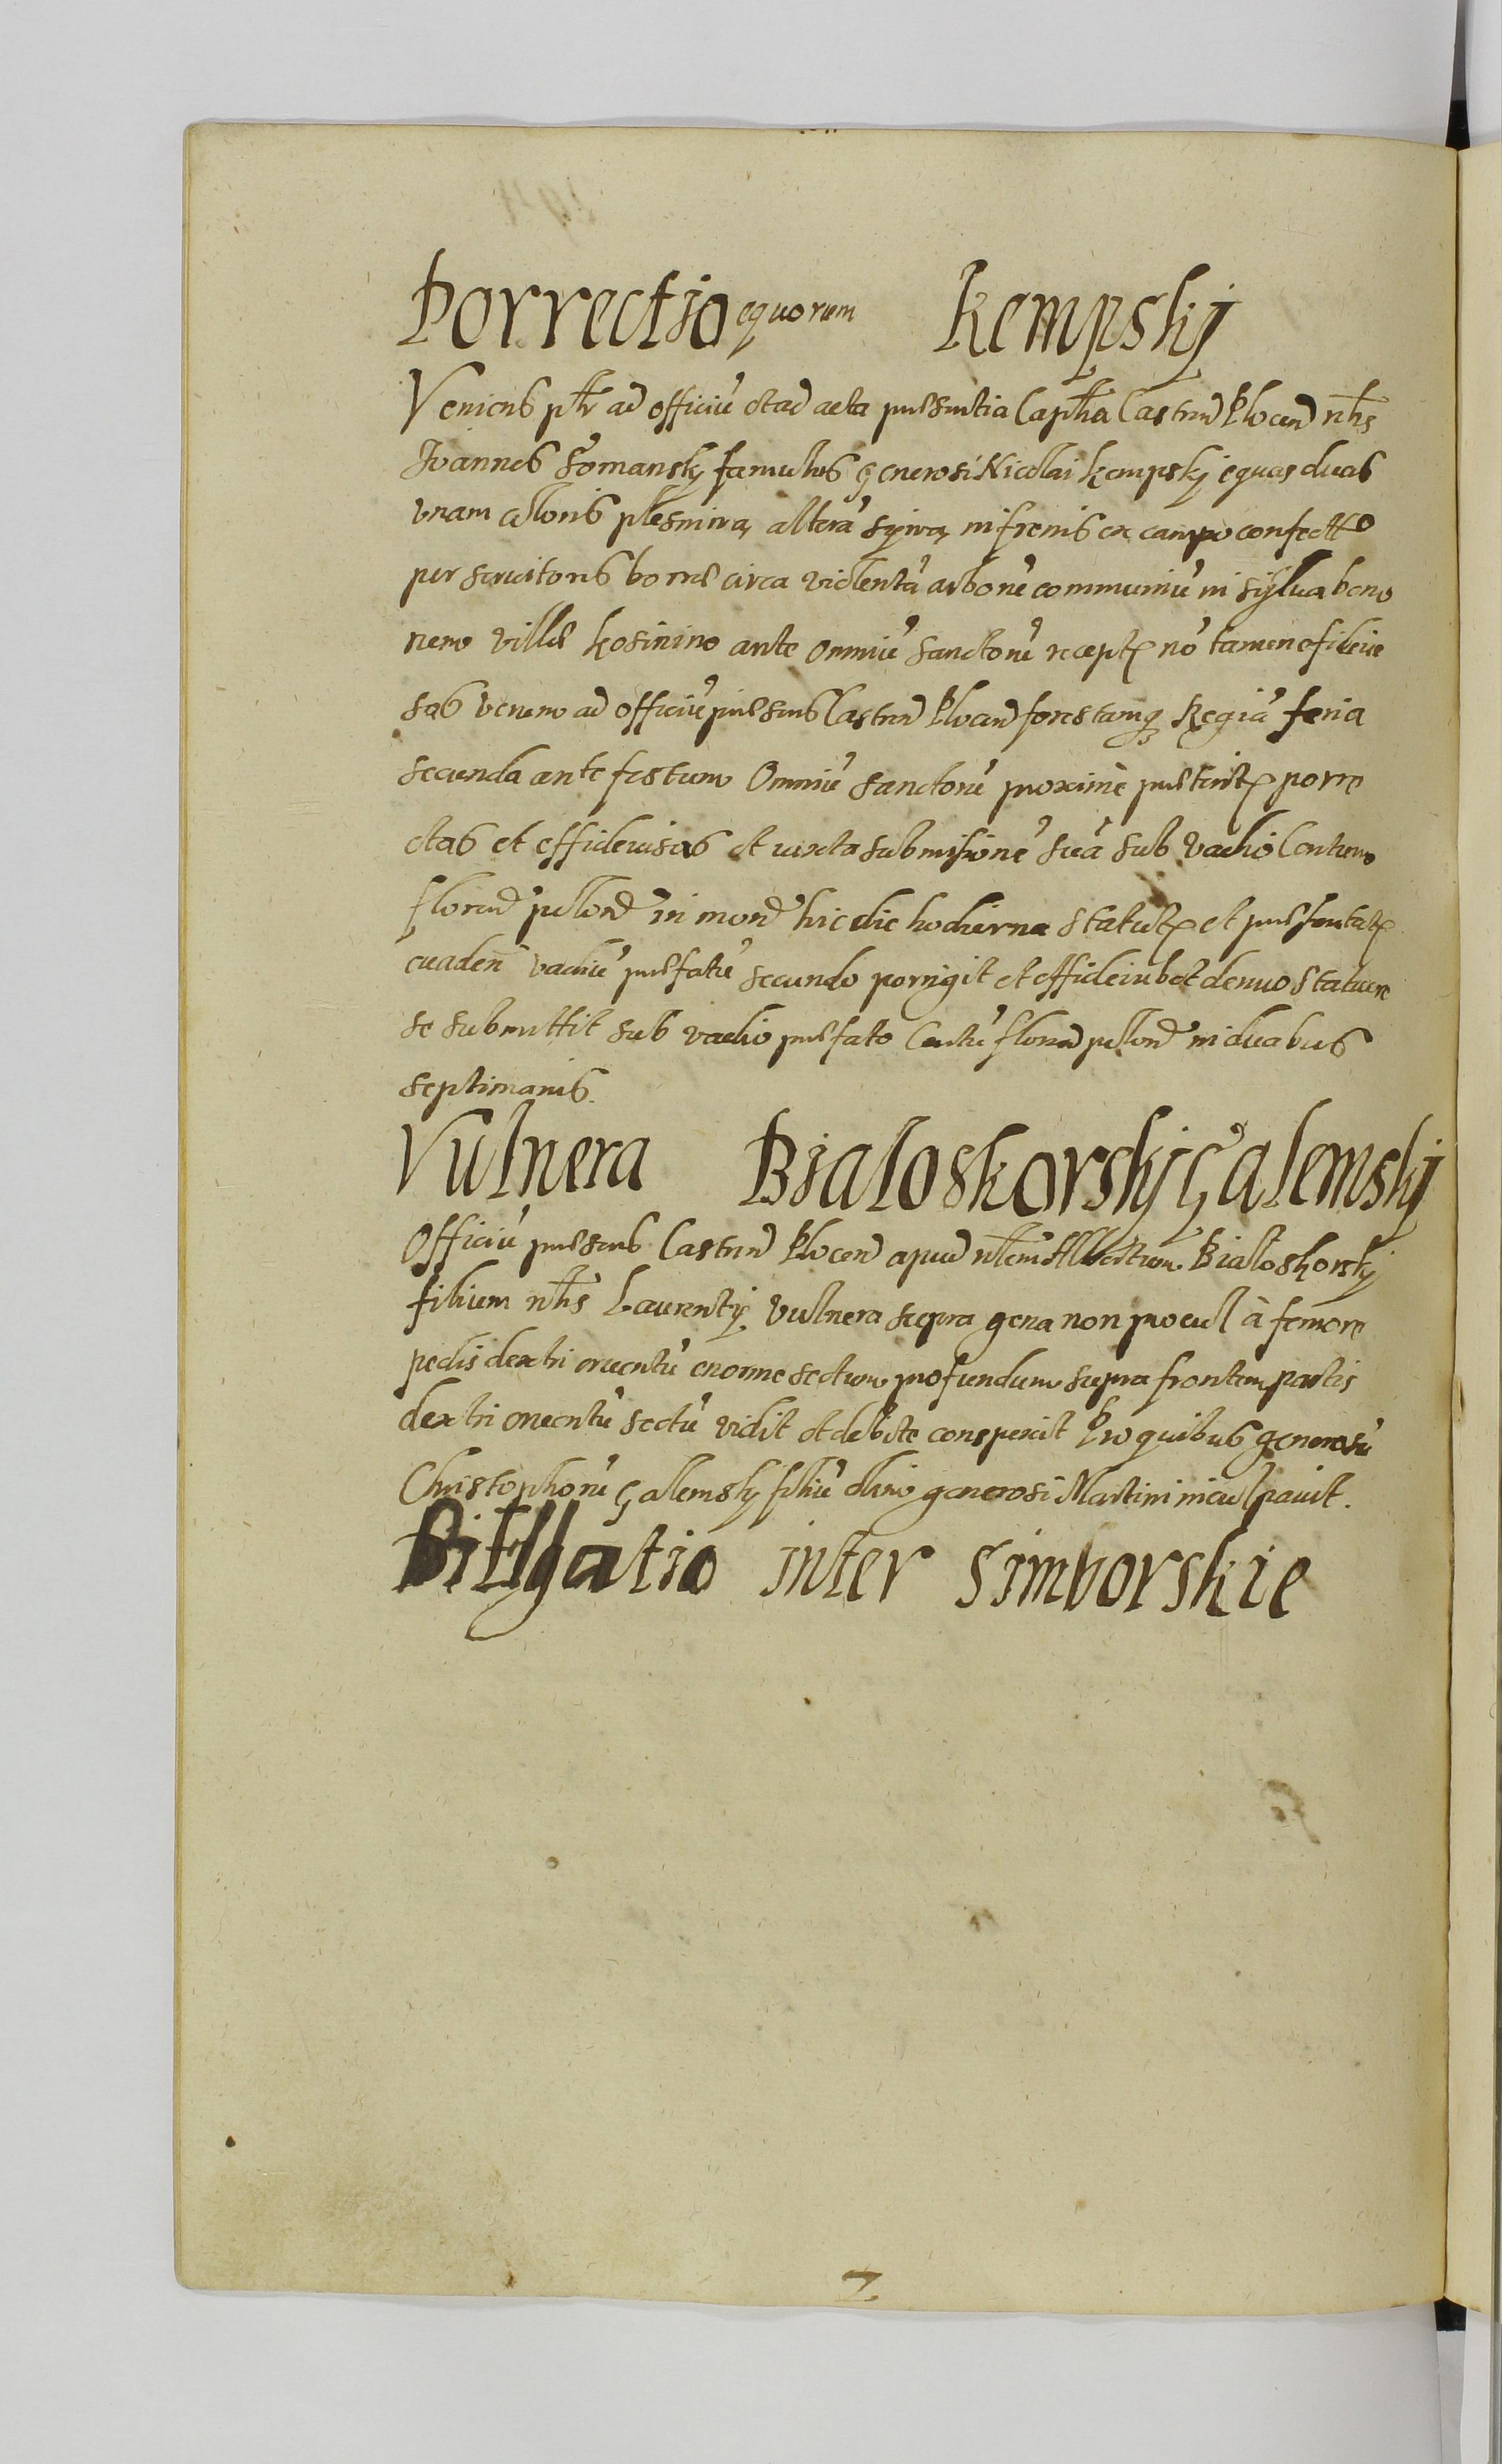 Porrectio equorum Kempskj
Veniens pltr ad officiũ et ad acta pnlsentia Capłlia Castrn̄ Plocen̄ nłis
Joannes Somansky famulus generosi Nicolai Kempskj equas duas
vnam coloris plesniwa, alterã sywa, in frenis ex campo confecto
per servitoris borrae circa violentã arborũ communiũ in sylua bono
rum villae Kosinino ante omniũ sanctorũ recept. nõ tamen efideiu
sas verum ad officiũ pnlsens Castrn̄ Plocen̄ forestamq Regiã feria
secunda ante festum Omniũ sanctorũ proximè pnlterit. porre
ctas et effideiusas et iuxta submissionẽ suã sub vadio Centum
floren̄ pollon̄ in mon̄ hic die hodierna statut. et pnlsentat.
euaden̄ vadiũ pnlfatũ secundo porrigit et effideiubet denuo statuere
se submittit sub vadio pnlfato Centũ floren̄ pollon̄ in duabus
septimanis.
Vulnera Bialoskorskj Galemskj
Officiũ pnlsens Castrn̄ Plocen̄ apud nłlem Albertum Bialoskorskj
filium nłis Laurentij vulnera supra gena non procul à femore
pedis dextri cruentũ enorme sectum profundum supra frontem partis
dextri cruentũ sectũ vidit et debite conspexit Pro quibus generosũ
Christophorũ Galemsky filiũ olim generosi Martini inculpauit.
Dillgatio inter Simborskie